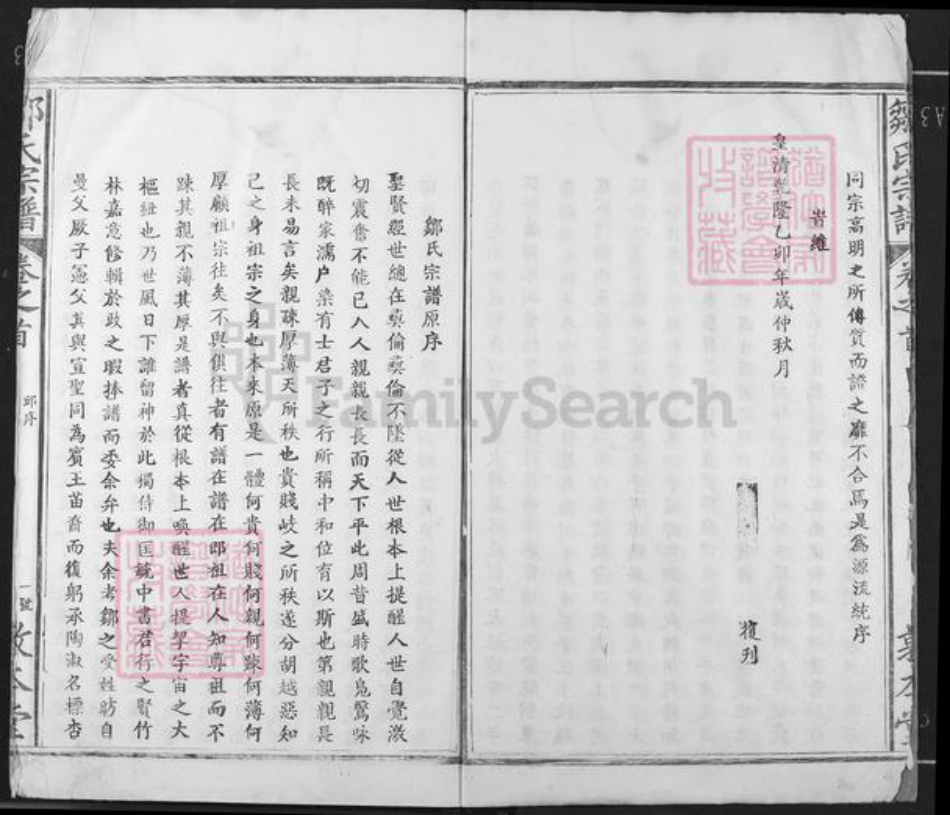 鄒氏宗譜
卷之首
同宗高明之所傳質而諮之靡不合焉是為源流統序
旹維
皇清乾隆乙卯年歲仲秋月
複刋
鄒氏宗譜原序
聖賢經世總在彜倫彜倫不墜從人世根本上提醒人世自覺激
切震奮不能已人人親親長長而天下平此周昔盛時歌鳬鷖咏
既醉家濡户染有士君子之行所稱中和位育以斯也第親親長
長未易言矣親疎厚薄天所秩也貴賤岐之所秩遂分胡越惡知
己之身祖宗之身也本來原是一體何貴何賤何親何踈何薄何
厚顧祖宗往矣不與俱往者有譜在譜在即祖在人知尊祖而不
踈其親不薄其厚是譜者真從根本上喚醒世人提挈宇宙之大
樞紐也乃世風日下誰留神於此獨侍御匡虩中書君行之賢竹
林嘉意修輯於政之暇捧譜而委余弁也夫余考鄒之受姓昉自
曼父厥子憲父其與宣聖同為賓王苗裔而復躬承陶淑名標杏
鄒氏宗譜
卷之首
邱序
一號
敦本堂
FamilySearch